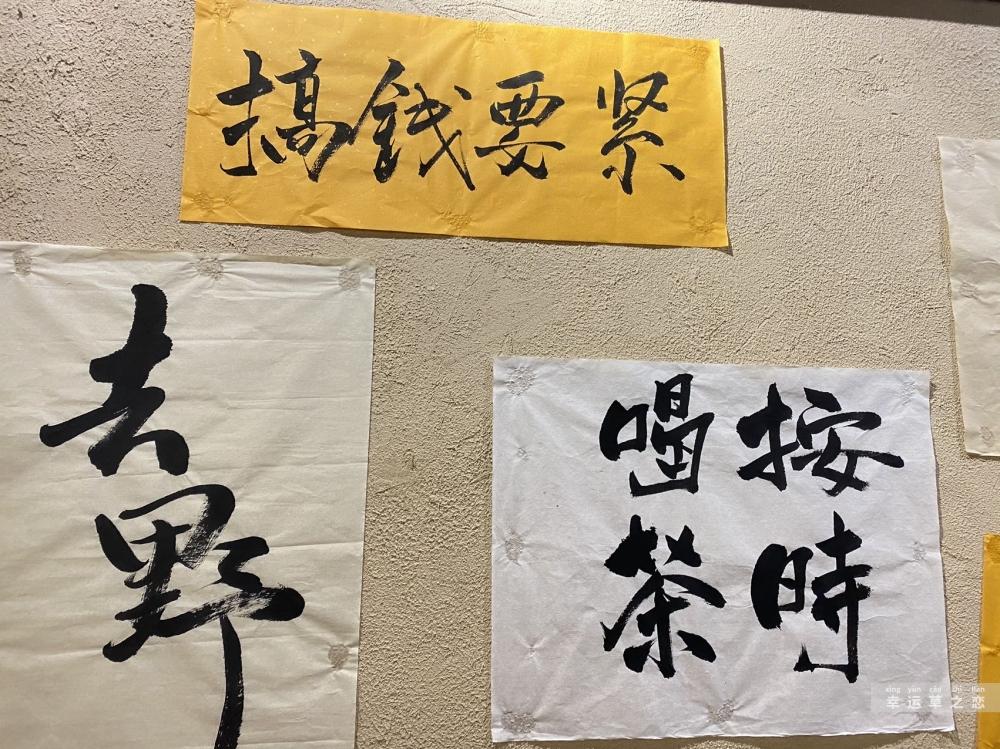 搞钱要紧
去野
按時
喝茶
xing yun cao zhi lian
幸运草之恋